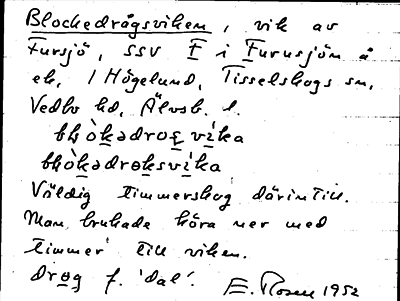 Blockedrågsviken, vik av
Fursjö, SSV F i Furusjön å
ek. 1 Högelund, Tisselskogs sn,
Vedbo hd, Älvsb. l.
Väldig timmerskog därintill.
Man brukade köra ner med
timmer till viken.
drøg f. 'dal'.
E. Rosen 1952